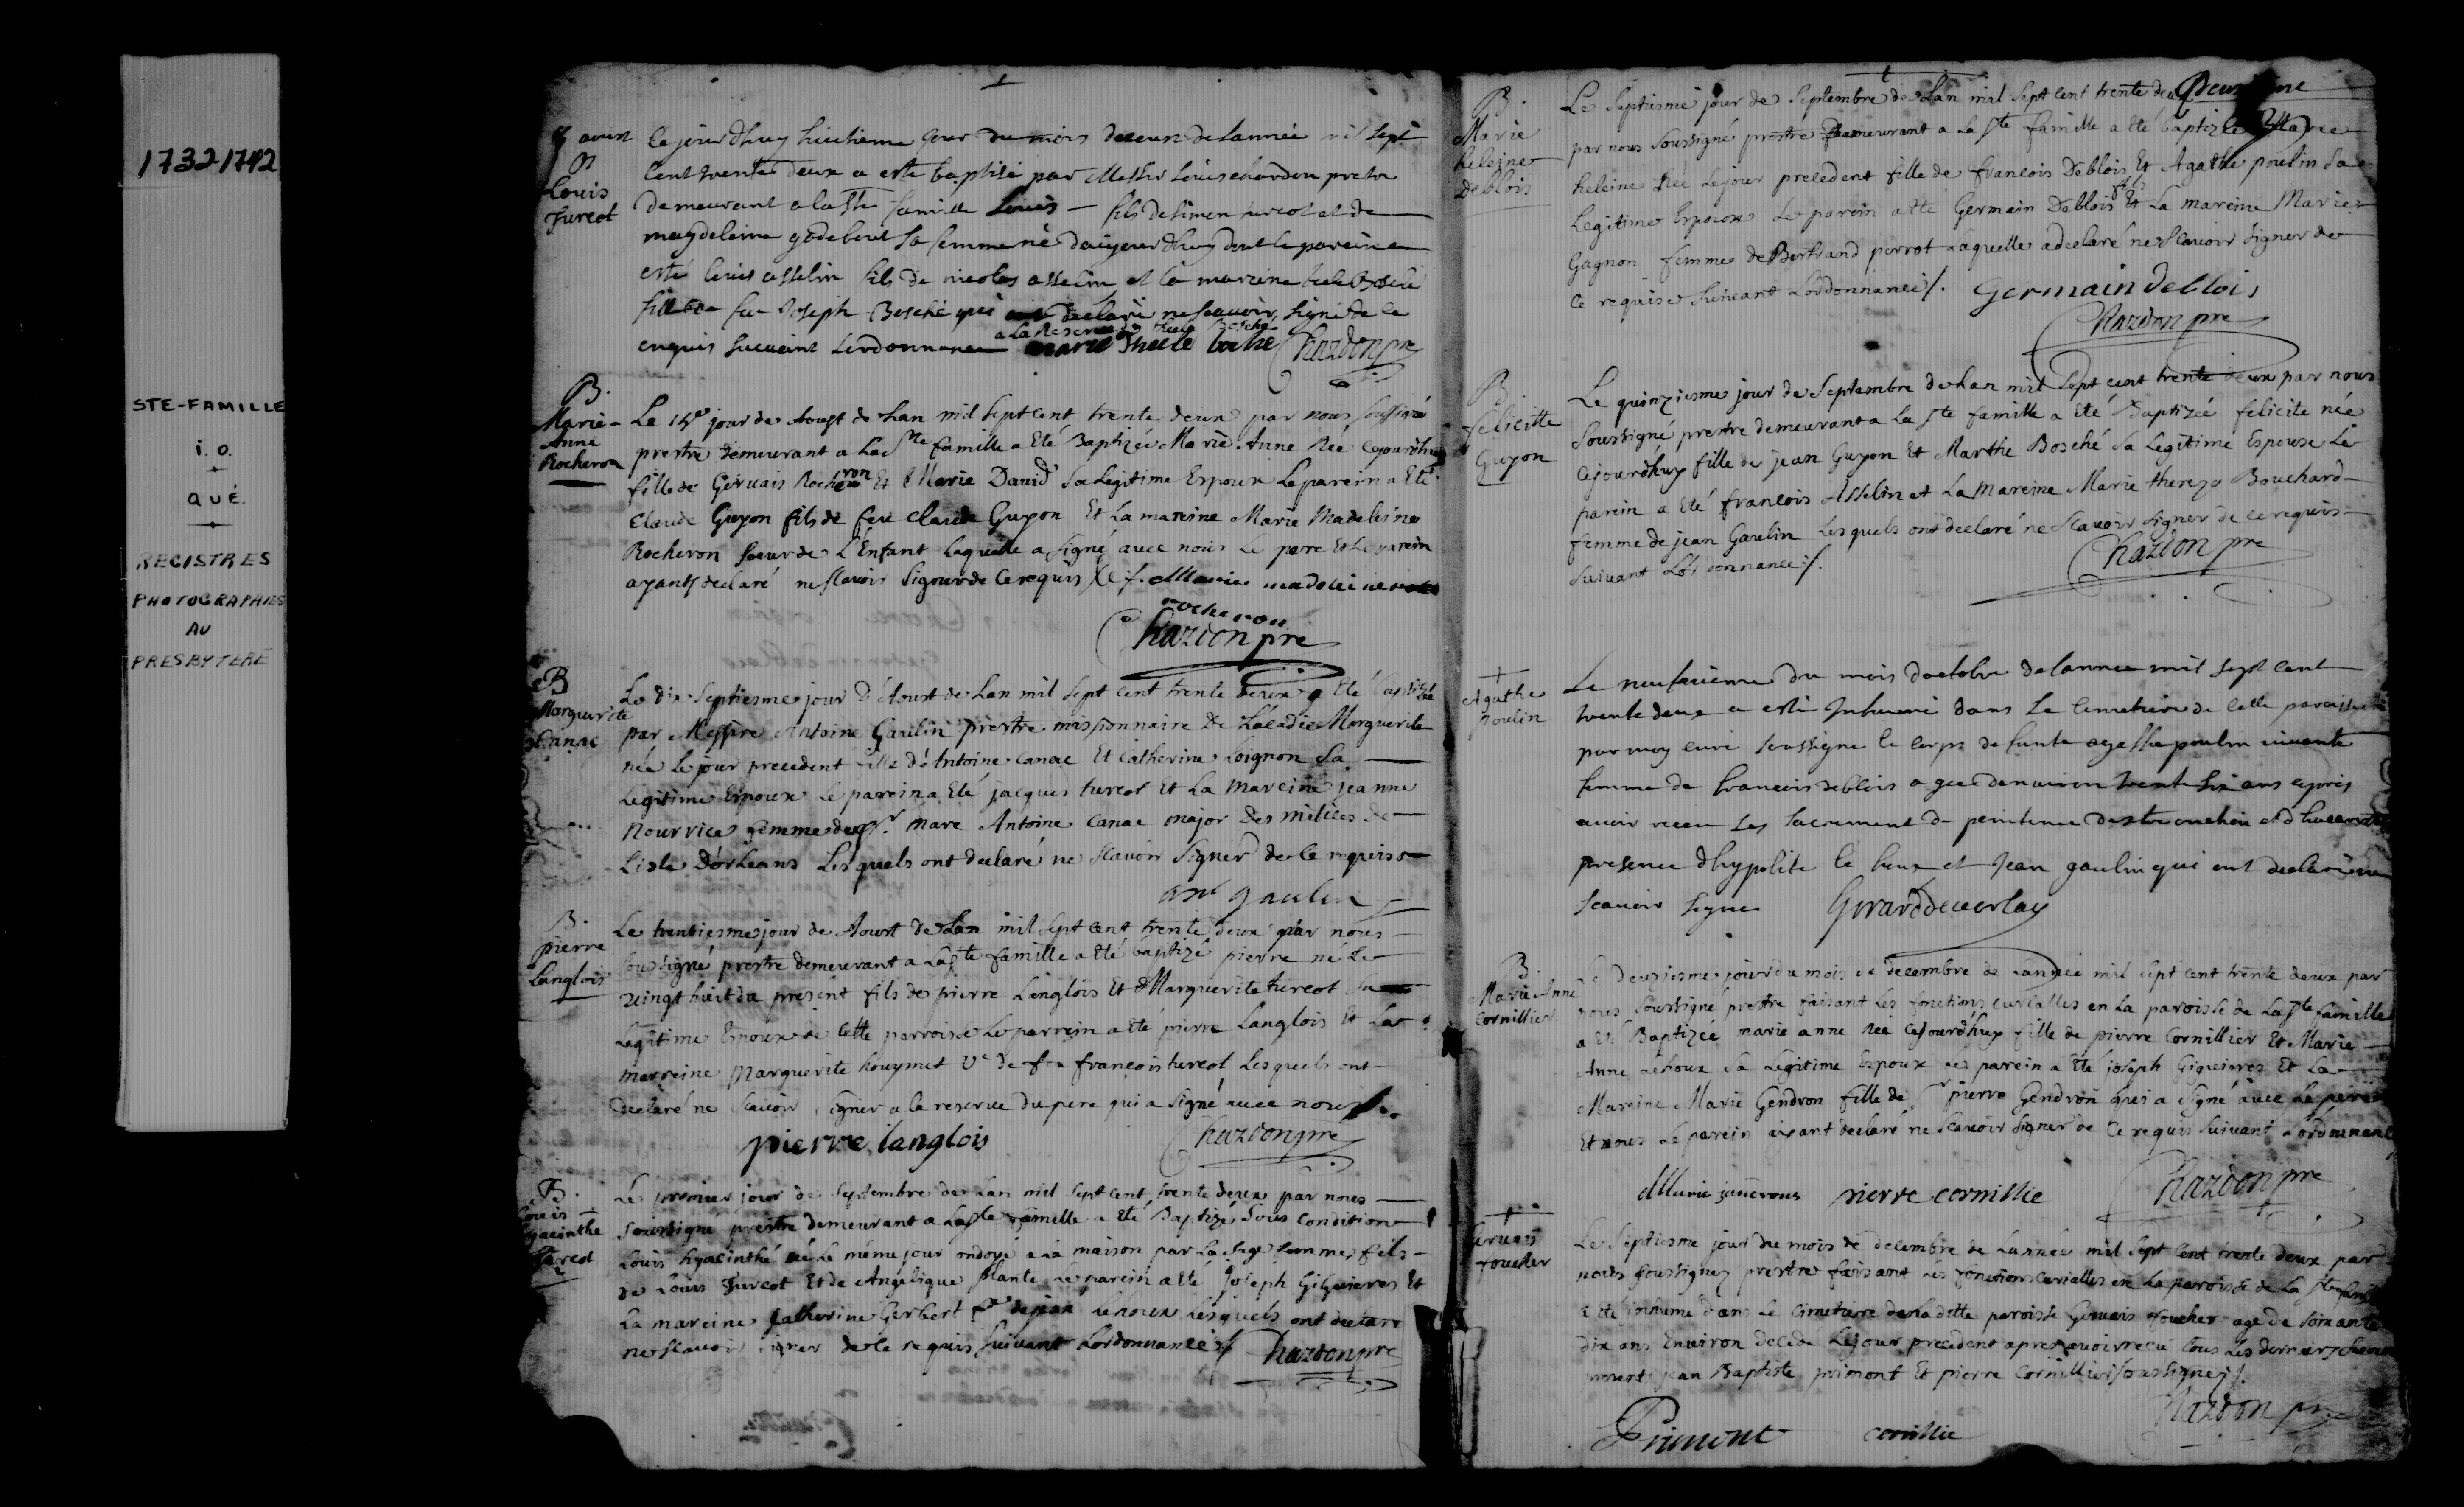 1732-1742
STE-FAMILLE
i. o.
QUÉ.
REGISTRES
PHOTOGRAPHIES
AU
PRESBYTERE
8 aoust
B
Louis
Turcot
Cejourdhuy huictieme jour du mois daoust de lannée mil sept
Cent trente deux a esté baptisé par Messire Louis chardon pretre
demeurant a la Ste famille Louis — fils de simon turcot et de
magdeleine godebout sa femme né daujourdhuy dont le parein a
esté louis asselin fils de nicolas asselin et la mareine
fille de feu Joseph Bosché qui declaré ne scavoir signé de ce
a la Reserve de
enquis suivant lordonnance marie Chardon pre
B.
Marie-
Anne
Rocheron
Le jour de Aoust de Lan mil sept cent trente deux par nous soussigné
prestre demeurant a La Ste famille a Eté Baptizée Marie Anne Née cejourdhuy
fille de Gervais Rocheron Et Marie David sa Legitime Espoux Le parein a Eté
Claude Guyon fils de feu Claude Guyon Et La mareine Marie Madeleine
Rocheron soeur de L'Enfant laquelle a signé avec nous Le pere Et Le parein
ayants declaré ne scavoir signer de ce requis Marie madeleine
rocheron
Chardon pre
B
Marguerite
Canac
Le dix septiesme jour D'Aoust de Lan mil sept cent trente deux a Eté baptizée
par Messire Antoine Gaulin prestre missionnaire De Lacadie Marguerite
née Le jour precedent fille d'Antoine Canac Et Catherine Loignon sa
Legitime Espoux Le parein a Eté jacques turcot Et La mareine jeanne
Nourrice femme de Sr. Marc Antoine Canac major Des milices de
Lisle D'orleans Lesquels ont declaré ne scavoir signer de ce requis
ant gaulin
B.
pierre
Langlois
Le trentiesme jour de Aoust de Lan mil sept cent trente deux par nous
soussigné prestre demeurant a La Ste famille a Eté baptizé pierre né Le
vingt huit du present fils de pierre Langlois Et Marguerite turcot sa
Legitime Espoux de Cette parroisse Le parrein a Eté pierre Langlois Et La
marreine Marguerite houymet Ve de feu françois turcot Lesquels ont
declaré ne scavoir signer a la reserve du pere qui a signé avec nous
pierre langlois Chardon pre
B.
Louis
hyacinthe
Turcot
Le premier jour de Septembre de Lan mil sept cent trente deux par nous
soussigné prestre demeurant a La Ste famille a Eté Baptizé sous condition
Louis hyacinthé né Le même jour ondoyé a la maison par La sage femme fils
de Louis Turcot Et de Angelique plante Le parein a Eté Joseph Giguieres Et
La mareine Catherine Gerbert de jean Lehoux Lesquels ont declaré
ne scavoir signer de ce requis suivant Lordonnance Chardon pre
B.
Marie
heleine
Deblois
Le Septiesme jour de Septembre de Lan mil sept cent trente deux
par nous soussigné prestre demeurant a La Ste famille a Eté baptizée Marie
heleine Née Le jour precedent fille de francois Deblois Et Agathe poulin sa
Legitime Espoux Le parein a Eté Germain Deblois Et La mareine Marie
Gagnon femme de Bertrand perrot Laquelle a declaré ne scavoir signer de
ce requis suivant Lordonnance Germain deblois
Chardon pre
B.
felicitte
Guyon
Le quinziesme jour de Septembre de Lan mil sept cent trente deux par nous
soussigné prestre demeurant a La Ste famille a Eté Baptizée felicite née
cejourdhuy fille de jean Guyon Et Marthe Bosché sa Legitime Espoux Le
parein a Eté francois Asselin et La mareine Marie therese Bouchard
femme de jean Gaulin Lesquels ont declaré ne scavoir signer de ce requis
suivant Lordonnance
Chardon pre
Agathe
Poulin
Le neufvieme du mois doctobre de lannee mil sept cent
trente deux a esté Inhumé dans le cimetiere de cette paroisse
par moy curé soussigné le corps de funte agathe poulin vivante
femme de francois deblois agee denviron trente six ans apres
avoir receu les sacrement de penitence
presence dhypolite le houx et Jean gaulin qui ont declaré ne
scavoir signer
B.
Marie Anne
Cornillier
Le Deuziesme jour du mois de decembre de Lannée mil sept cent trente deux par
nous soussigné prestre faisant Les fonctions curialles en La paroisse de La Ste famille
a Eté Baptizée marie anne Née cejourdhuy fille de pierre Cornillier Et Marie
Anne Lehoux sa Legitime Espoux Le parein a Eté joseph Giguieres Et La
Mareine Marie Gendron fille de Sr pierre Gendron qui a signé avec Le pere
Et nous Le parein ayant declaré ne scavoir signer de ce requis suivant Lordonnance
Marie pierre cornillie Chardon pre
Gervais
foucher
Le Septiesme jour du mois de decembre de Lannée mil sept cent trente deux par
nous soussignez prestre faisant Les fonctions curialles en La paroisse de La Ste
a Eté inhumé dans Le cimetiere de la ditte paroisse Gervais foucher agé de soixante
dix ans Environ decedé Le jour precedent apres avoir recu tous Les derniers
present jean Baptiste primont Et pierre Cornillier soussignez
Chardon pre
Primont cornillie